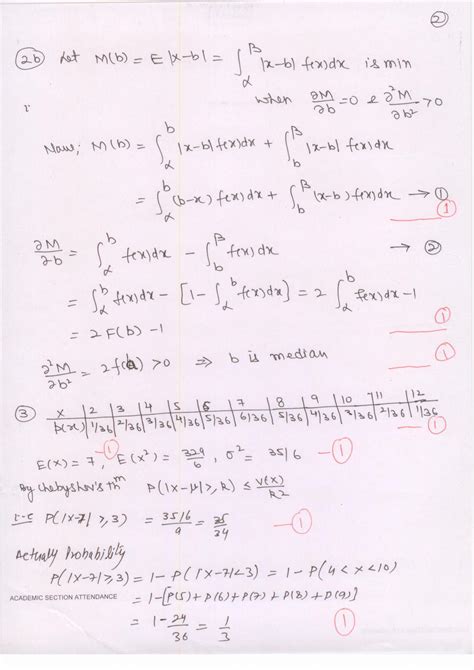 2
2b Let M(b) = E|x-b| = ∫_α^β |x-b| f(x)dx is min
when ∂M/∂b = 0 & ∂²M/∂b² > 0
Now; M(b) = ∫_α^b |x-b| f(x)dx + ∫_b^β |x-b| f(x)dx
= ∫_α^b (b-x) f(x)dx + ∫_b^β (x-b) f(x)dx → 1
1
∂M/∂b = ∫_α^b f(x)dx - ∫_b^β f(x)dx → 2
= ∫_α^b f(x)dx - [1 - ∫_α^b f(x)dx] = 2 ∫_α^b f(x)dx - 1
= 2F(b) - 1
1
∂²M/∂b² = 2f(b) > 0 ⇒ b is median
1
3 x 2 3 4 5 6 7 8 9 10 11 12
p(x) 1/36 2/36 3/36 4/36 5/36 6/36 5/36 4/36 3/36 2/36 1/36
1
E(x) = 7, E(x²) = 329/6, σ² = 35/6
1 1
By Chebyshev's thm P(|x-μ| ≥, k) ≤ V(x)/k²
i-e P(|x-7| ≥, 3) = 35/6/9 = 35/54
1
Actually Probability
P(|x-7| ≥ 3) = 1 - P(|x-7| < 3) = 1 - P(4 < x < 10)
ACADEMIC SECTION ATTENDANCE
= 1 - [P(5) + P(6) + P(7) + P(8) + P(9)]
= 1 - 24/36 = 1/3
1